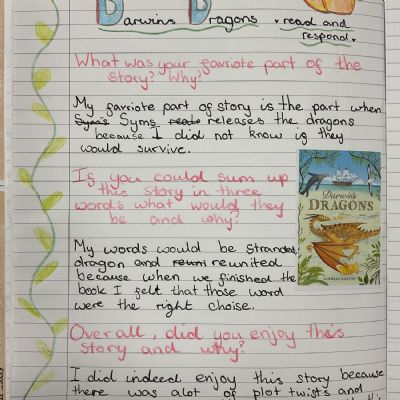 Darwins Dragons • read and
respond.
What was your favriote part of the
story? Why?
My favriote part of story is the part when
Syms releases the dragons
because I did not know is they
would survive.
If you could sum up
this story in three
words what would they
be and why?
Darwin's
DRAGONS
LINDSAY GALVIN
My words would be stranded
dragon and reunited
because when we finished the
book I felt that those word
were the right choise.
Overall, did you enjoy this
story and why?
I did indeed enjoy this story because
there was alot of plot twists and